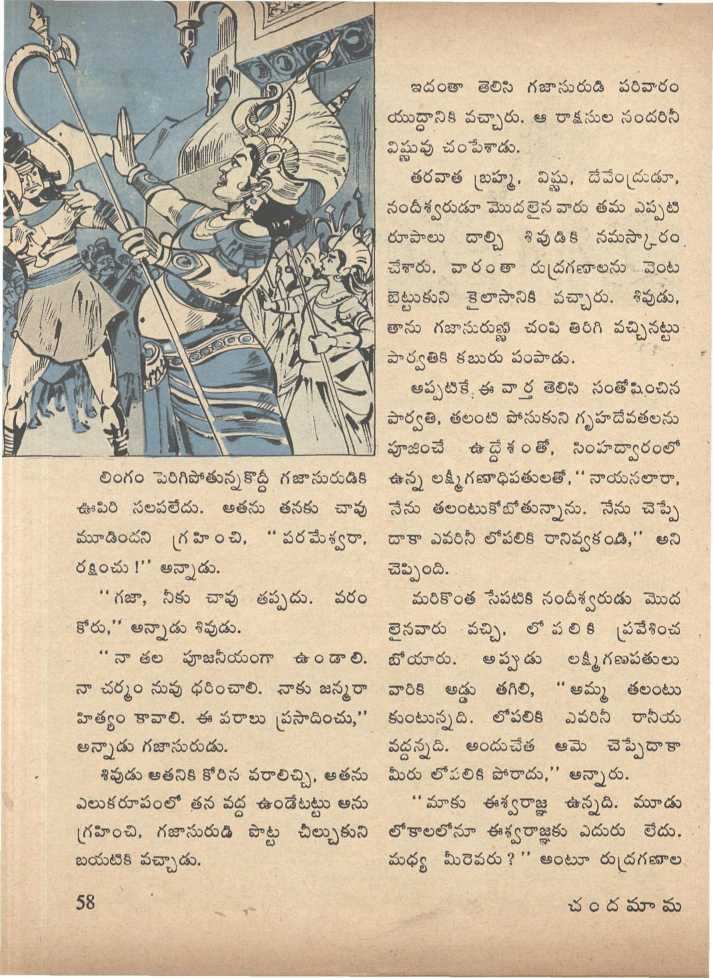 లింగం పెరిగిపోతున్నకొద్దీ గజాసురుడికి
ఊపిరి సలపలేదు. అతను తనకు చావు
మూడిందని గ్రహించి, “పరమేశ్వరా,
రక్షించు!” అన్నాడు.
“గజా, నీకు చావు తప్పదు. వరం
కోరు,” అన్నాడు శివుడు.
“నా తల పూజనీయంగా ఉండాలి.
నా చర్మం నువు ధరించాలి. నాకు జన్మరా
హిత్యం కావాలి. ఈ వరాలు ప్రసాదించు,”
అన్నాడు గజాసురుడు.
శివుడు అతనికి కోరిన వరాలిచ్చి, అతను
ఎలుకరూపంలో తన వద్ద ఉండేటట్టు అను
గ్రహించి, గజాసురుడి పొట్ట చీల్చుకుని
బయటికి వచ్చాడు.
ఇదంతా తెలిసి గజాసురుడి పరివారం
యుద్ధానికి వచ్చారు. ఆ రాక్షసుల నందరినీ
విష్ణువు చంపేశాడు.
తరవాత బ్రహ్మ, విష్ణు, దేవేంద్రుడూ,
నందీశ్వరుడూ మొదలైనవారు తమ ఎప్పటి
రూపాలు దాల్చి శివుడికి నమస్కారం
చేశారు. వారంతా రుద్రగణాలను వెంట
బెట్టుకుని కైలాసానికి వచ్చారు. శివుడు,
తాను గజాసురుణ్ణి చంపి తిరిగి వచ్చినట్టు
పార్వతికి కబురు పంపాడు.
అప్పటికే ఈ వార్త తెలిసి సంతోషించిన
పార్వతి, తలంటి పోసుకుని గృహదేవతలను
పూజించే ఉద్దేశంతో, సింహద్వారంలో
ఉన్న లక్ష్మీగణాధిపతులతో, “నాయనలారా,
నేను తలంటుకోబోతున్నాను. నేను చెప్పే
దాకా ఎవరినీ లోపలికి రానివ్వకండి,” అని
చెప్పింది.
మరికొంత సేపటికి నందీశ్వరుడు మొద
లైనవారు వచ్చి, లోపలికి ప్రవేశించ
బోయారు. అప్పుడు లక్ష్మీగణపతులు
వారికి అడ్డు తగిలి, “అమ్మ తలంటు
కుంటున్నది. లోపలికి ఎవరినీ రానీయ
వద్దన్నది. అందుచేత ఆమె చెప్పేదాకా
మీరు లోపలికి పోరాదు,” అన్నారు.
“మాకు ఈశ్వరాజ్ఞ ఉన్నది. మూడు
లోకాలలోనూ ఈశ్వరాజ్ఞకు ఎదురు లేదు.
మధ్య మీరెవరు?” అంటూ రుద్రగణాల
58
చందమామ